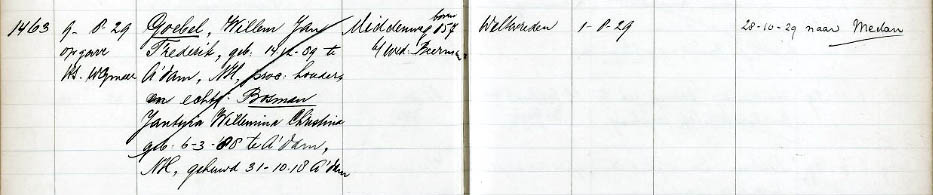 1463 9-8-29 Goebel, Willem Jan Middenweg boven 157 Weltvreden 1-8-29 28-10-29 naar Medan
opgave Frederik, geb. 14-2-09 te b/ wed.
A'dam, NH, proc. houder,
en echtg. Bosman
Jantyia Willemina Christina
geb. 6-3-88 te A'dam,
NH, gehuwd 31-10-18 A'dam